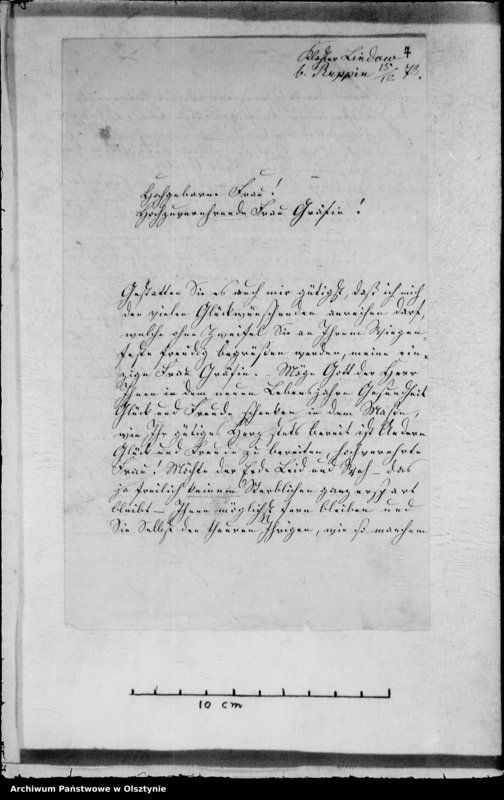 4
Kloster Lindow
b. Ruppin 15/12 73.
Hochgeborne Frau!
Hochzuverehrende Frau Gräfin!
Gestatten Sie es auch mir gütigst, daß ich mich
den vielen Glückwünschenden anreihen darf,
welche ohne Zweifel Sie an Ihrem Wiegen-
feste freudig begrüßen werden, meine ein-
zige Frau Gräfin. – Möge Gott der Herr
Ihnen in dem neuen Lebensjahre Gesundheit
Glück und Freude schenken in dem Maße,
wie Ihr gütiges Herz stets bereit ist Andern
Glück und Freude zu bereiten, hochverehrte
Frau! Möchte der Erde Leid und Weh – das
ja freilich keinem Sterblichen ganz erspart
bleibt – Ihnen möglichst fern bleiben und
Sie Selbst den theuren Ihrigen, wie so manchem
10 cm
Archiwum Państwowe w Olsztynie